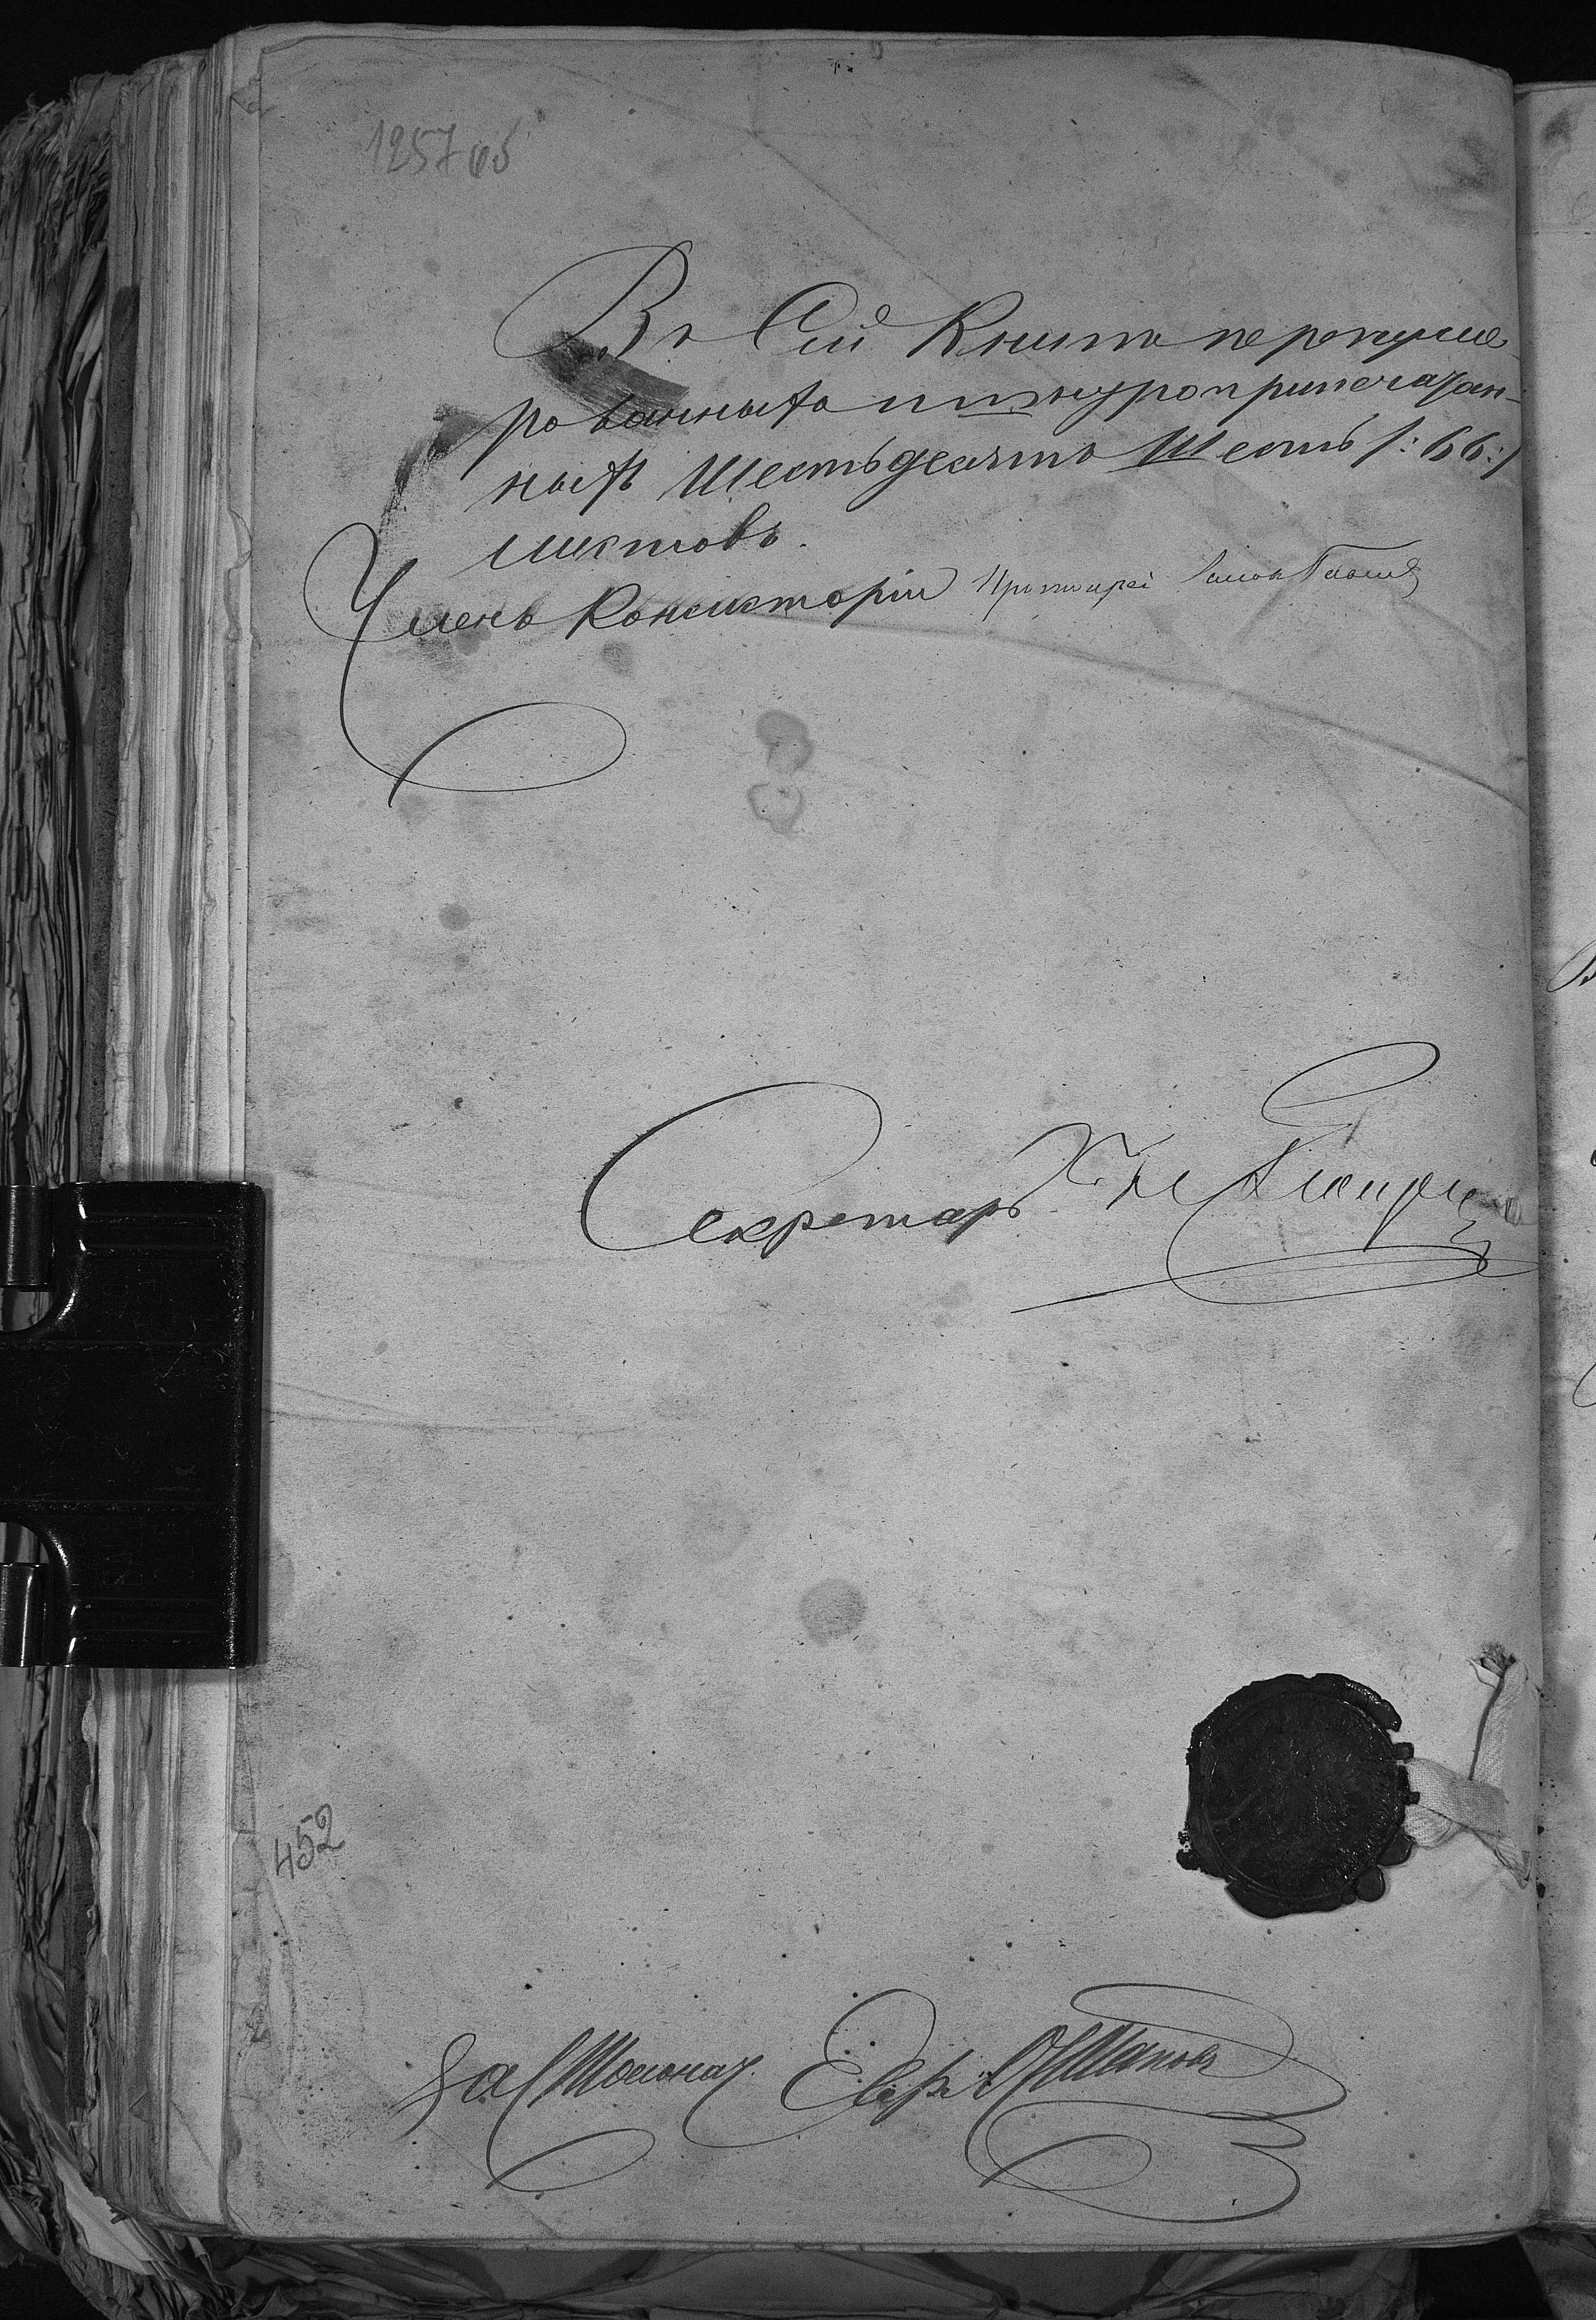 1257об
Въ Сей Книгѣ перенуме-
рованныхъ и шнуроприпечатан-
ныхъ Шестьдесятъ Шесть /:66:/
листовъ.
Членъ Консисторіи Протоіерей
Секретарь
452
За Столонач.